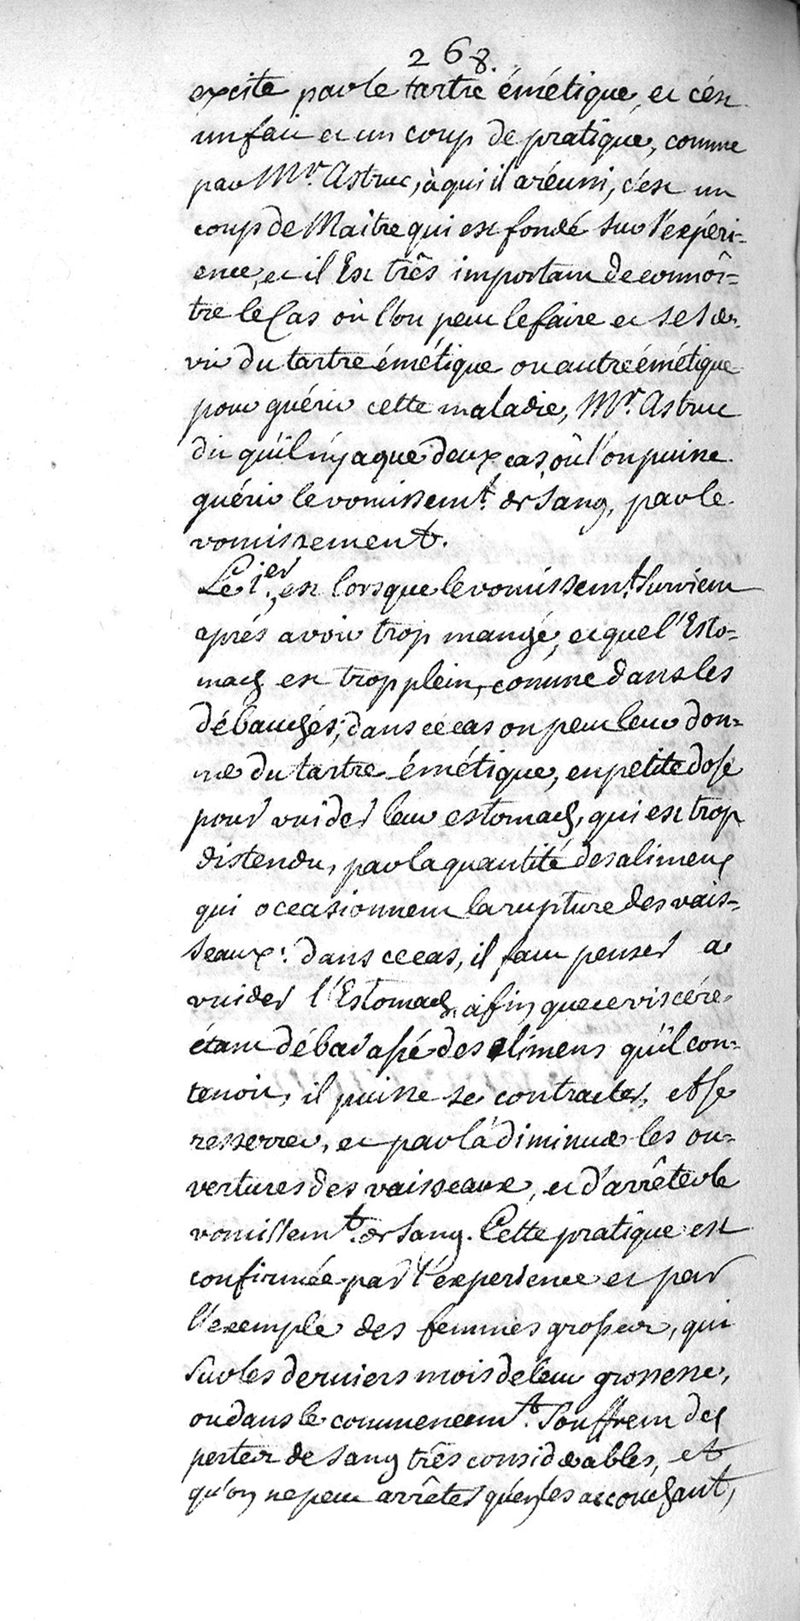 268.
excite par le tartre émétique, et c'est
un fait et un coup de pratique, comme
par Mr. Astruc, à qui il a réussi, c'est un
coup de Maitre qui est fondé sur l'expéri=
ence, et il Est três important de connôi=
tre le Cas où l'on peut le faire et se ser=
vir du tartre émétique ou autre émétique
pour guérir cette maladie, Mr. Astruc
dit qu'il n'y a que deux cas, où l'on puisse
guérir le vomissemt. de Sang, par le
vomissement.
Le 1er. est lorsque le vomissemt. Survient
aprés avoir trop mangé, et que l'Esto=
mach est trop plein, comme dans les
débauchés; dans ce cas on peut leur don=
ner du tartre émétique, en petite dose
pour vuider leur estomach, qui est trop
distendu, par la quantité des alimens
qui occasionnent la rupture des vais=
seaux: dans ce cas, il faut penser a
vuider l'Estomach, afin que ce viscére,
étant débarassé des alimens qu'il con=
tenoit, il puisse se contracter, et se
resserrer, et par là diminuer les ou=
vertures des vaisseaux, et d'arrêter le
vomissemt. de Sang. Cette pratique est
confirmée par l'experience et par
l'exemple des femmes grosses, qui
Sur les derniers mois de leur grossesse,
ou dans le commencemt. Souffrent des
pertes de Sang três considerables, et
qu'on ne peut arrêter qu'en les accouchant,